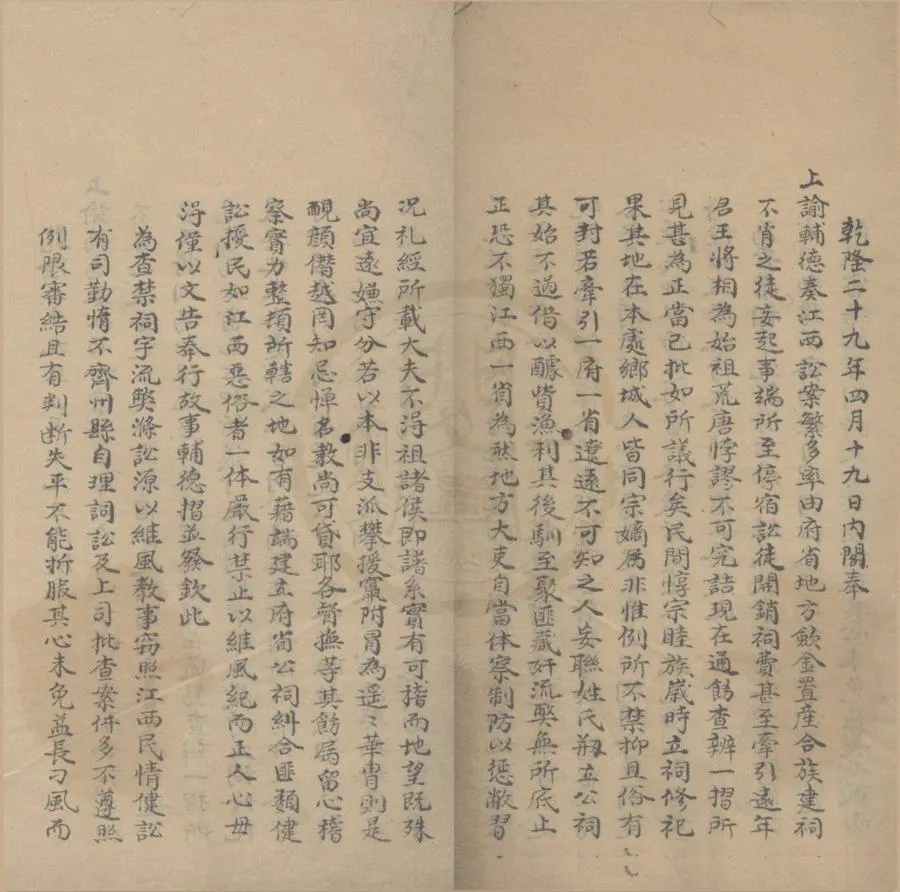 乾隆二十九年四月十九日內閣奉
上諭輔德奏江西訟案繁多率由府省地方歛金置産合族建祠
不肖之徒妄起事端所至停宿訟徒開銷祠費甚至牽引遠年
君王將相為始祖荒唐悖謬不可究詰現在通飭查辨一摺所
見甚為正當已批如所議行矣民間惇宗睦族嵗時立祠修祀
果其地在本處鄉城人皆同宗嫡属非惟例所不禁抑且俗有
可封若牽引一府一省遼遠不可知之人妄聯姓氏刱立公祠
其始不過借以醵貲漁利其後馴至聚匪藏奸流獘無所底止
正恐不獨江西一省為然地方大吏自當体察制防以惩敝習
况礼經所載大夫不淂祖諸侯即譜系實有可稽而地望既殊
尚宜遠嫌守分若以本非支派攀援竄附冐為遥〻華胄則是
靦顔僭越罔知忌憚名教尚可貸耶各督撫等其飭属留心稽
察實力整頓所轄之地如有藉端建立府省公祠糾合匪類健
訟擾民如江西惡俗者一体嚴行禁止以維風紀而正人心毋
淂僅以文告奉行故事輔德摺並發欽此
為查禁祠宇流獘滌訟源以維風教事窃照江西民情健訟
有司勤惰不齊州縣自理詞訟及上司批查案件多不遵照
例限審結且有判断失平不能折服其心未免益長刁風而